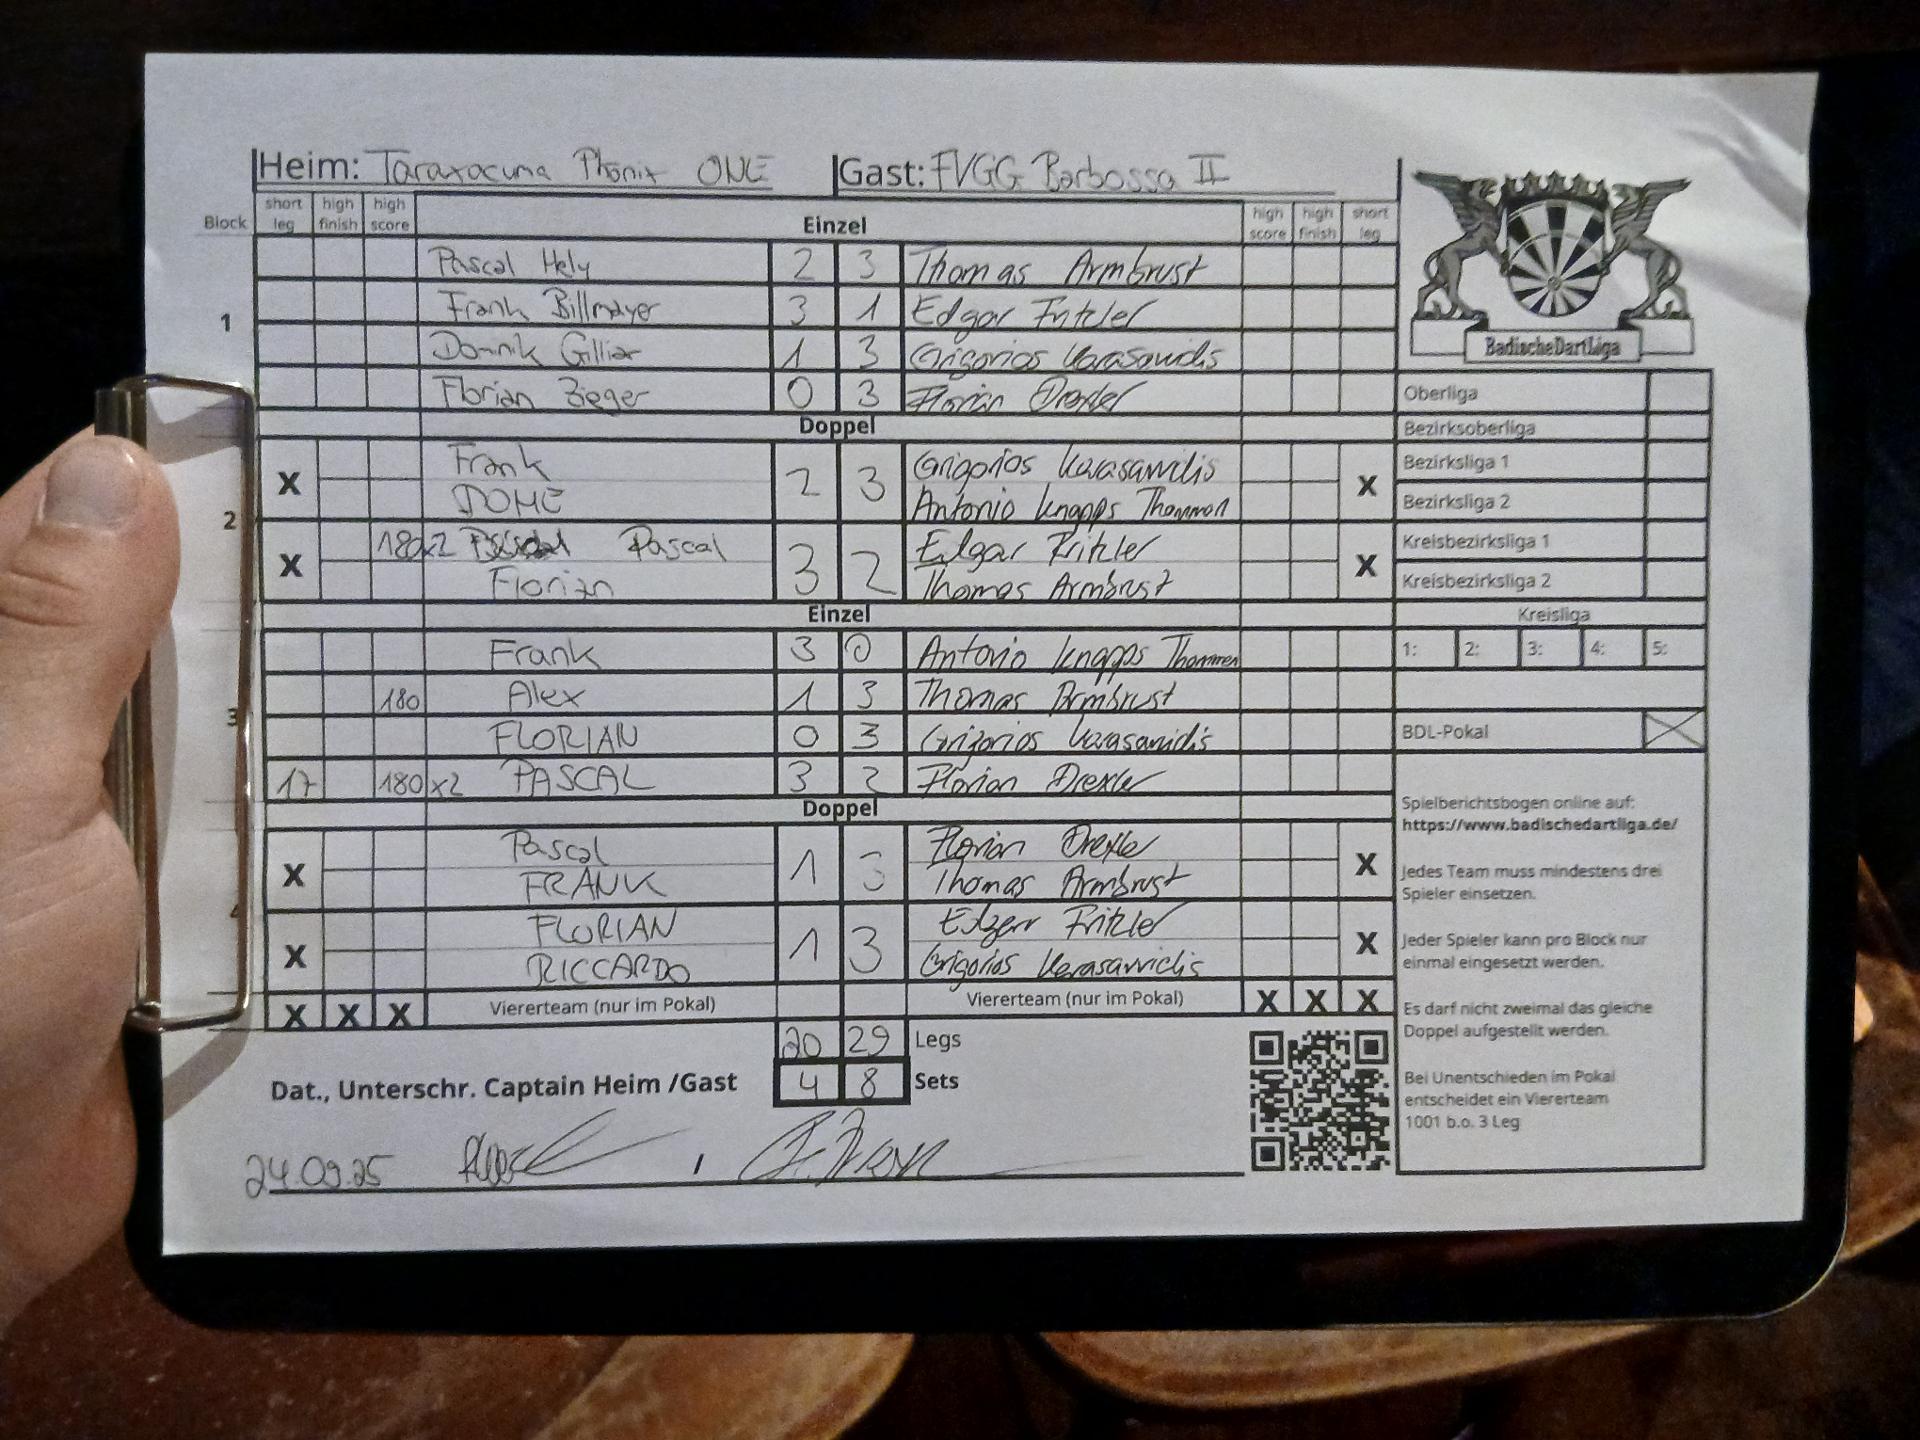 Heim: Taraxacuma Phönix ONE Gast: FVGG Barbossa II
Block short leg high finish high score Einzel high score high finish short leg
1
Pascal Hely 2 3 Thomas Armbrust
Frank Billmayer 3 1 Edgar Fritzler
Dominik Gillier 1 3 Grigorios Karasavvidis
Florian Zieger 0 3 Florian Drexler
Doppel
2
X Frank 2 3 Grigorios Karasavvidis X
DOME Antonio Knapps Thommen
X 180x2 Pascal 3 2 Edgar Fritzler X
Florian Thomas Armbrust
Einzel
3
Frank 3 0 Antonio Knapps Thommen
180 Alex 1 3 Thomas Armbrust
FLORIAN 0 3 Grigorios Karasavvidis
17 180x2 PASCAL 3 2 Florian Drexler
Doppel
4
X Pascal 1 3 Florian Drexler X
FRANK Thomas Armbrust
X FLORIAN 1 3 Edgar Fritzler X
RICCARDO Grigorios Karasavvidis
X X X Viererteam (nur im Pokal) Viererteam (nur im Pokal) X X X
20 29 Legs
4 8 Sets
Dat., Unterschr. Captain Heim /Gast
24.09.25
BadischeDartLiga
Oberliga
Bezirksoberliga
Bezirksliga 1
Bezirksliga 2
Kreisbezirksliga 1
Kreisbezirksliga 2
Kreisliga
1: 2: 3: 4: 5:
BDL-Pokal X
Spielberichtsbogen online auf:
https://www.badischedartliga.de/
Jedes Team muss mindestens drei
Spieler einsetzen.
Jeder Spieler kann pro Block nur
einmal eingesetzt werden.
Es darf nicht zweimal das gleiche
Doppel aufgestellt werden.
Bei Unentschieden im Pokal
entscheidet ein Viererteam
1001 b.o. 3 Leg